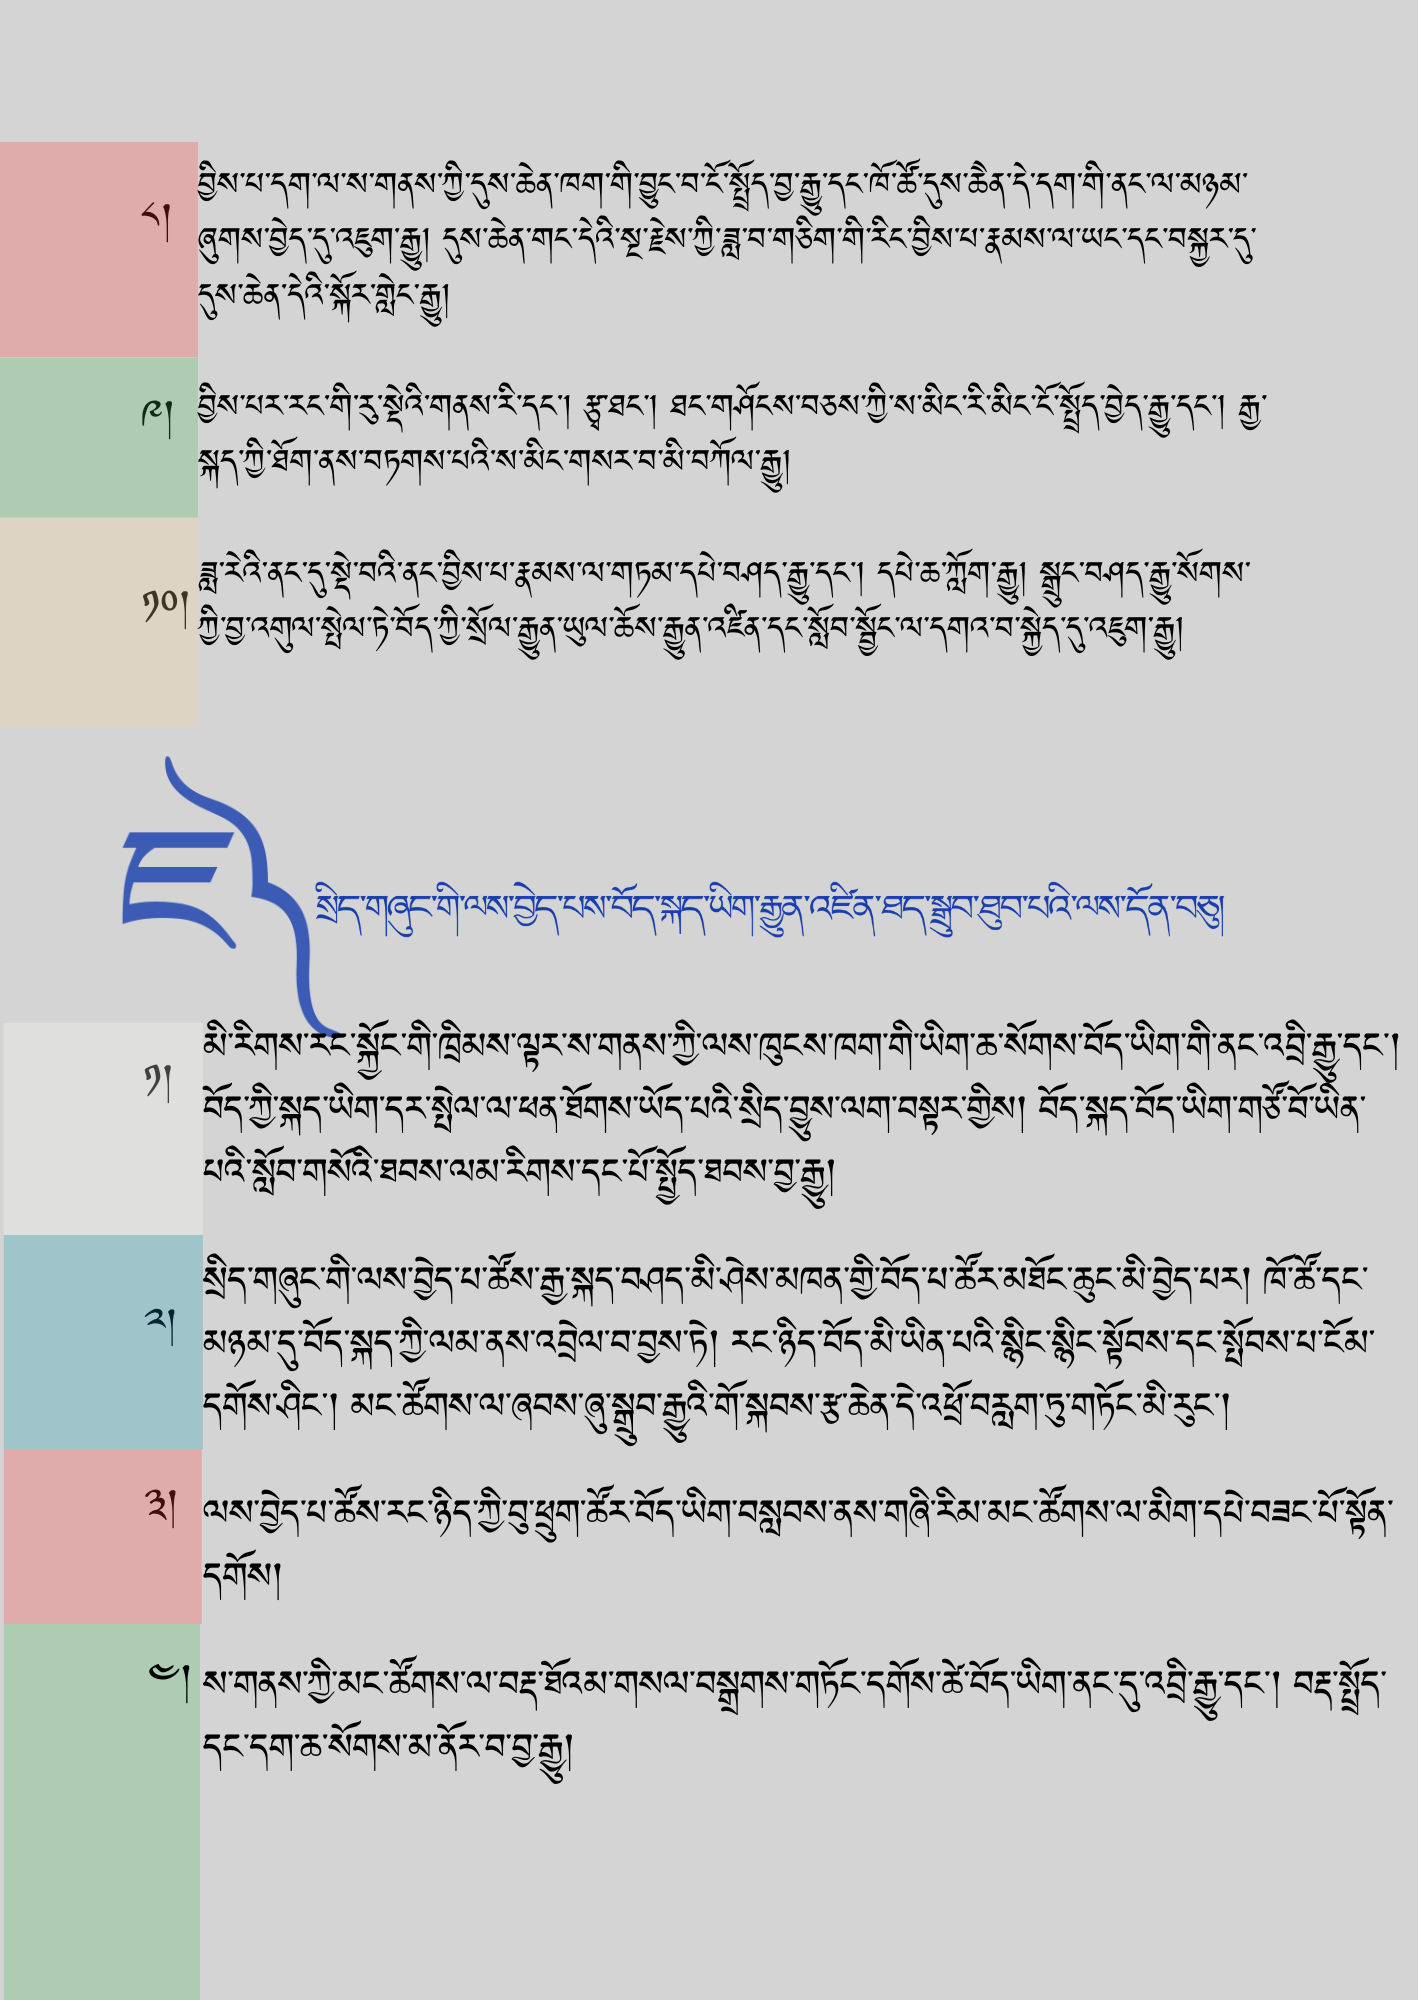 ༨། བྱིས་པ་དག་ལ་ས་གནས་ཀྱི་དུས་ཆེན་ཁག་གི་བྱུང་བ་ངོ་སྤྲོད་བྱ་རྒྱུ་དང་ཁོ་ཚོ་དུས་ཆེན་དེ་དག་གི་ནང་ལ་མཉམ་
ཞུགས་བྱེད་དུ་འཇུག་རྒྱུ། དུས་ཆེན་གང་དེའི་སྔ་རྗེས་ཀྱི་ཟླ་བ་གཅིག་གི་རིང་བྱིས་པ་རྣམས་ལ་ཡང་དང་བསྐྱར་དུ་
དུས་ཆེན་དེའི་སྐོར་གླེང་རྒྱུ།
༩། བྱིས་པར་རང་གི་རུ་སྡེའི་གནས་རི་དང་། རྩྭ་ཐང་། ཐང་གཤོངས་བཅས་ཀྱི་ས་མིང་རི་མིང་ངོ་སྤྲོད་བྱེད་རྒྱུ་དང་། རྒྱ་
སྐད་ཀྱི་ཐོག་ནས་བཏགས་པའི་ས་མིང་གསར་བ་མི་བཀོལ་རྒྱུ།
༡༠། ཟླ་རེའི་ནང་དུ་སྡེ་བའི་ནང་བྱིས་པ་རྣམས་ལ་གཏམ་དཔེ་བཤད་རྒྱུ་དང་། དཔེ་ཆ་ཀློག་རྒྱུ། སྒྲུང་བཤད་རྒྱུ་སོགས་
ཀྱི་བྱ་འགུལ་སྤེལ་ཏེ་བོད་ཀྱི་སྲོལ་རྒྱུན་ཡུལ་ཆོས་རྒྱུན་འཛིན་དང་སློབ་སྦྱོང་ལ་དགའ་བ་སྐྱེད་དུ་འཇུག་རྒྱུ།
སྲིད་གཞུང་གི་ལས་བྱེད་པས་བོད་སྐད་ཡིག་རྒྱུན་འཛིན་ཐད་སྒྲུབ་ཐུབ་པའི་ལས་དོན་བཅུ།
༡། མི་རིགས་རང་སྐྱོང་གི་ཁྲིམས་ལྟར་ས་གནས་ཀྱི་ལས་ཁུངས་ཁག་གི་ཡིག་ཆ་སོགས་བོད་ཡིག་གི་ནང་འབྲི་རྒྱུ་དང་།
བོད་ཀྱི་སྐད་ཡིག་དར་སྤེལ་ལ་ཕན་ཐོགས་ཡོད་པའི་སྲིད་བྱུས་ལག་བསྟར་གྱིས། བོད་སྐད་བོད་ཡིག་གཙོ་བོ་ཡིན་
པའི་སློབ་གསོའི་ཐབས་ལམ་རིགས་དང་པོ་སྤྱོད་ཐབས་བྱ་རྒྱུ།
༢། སྲིད་གཞུང་གི་ལས་བྱེད་པ་ཚོས་རྒྱ་སྐད་བཤད་མི་ཤེས་མཁན་གྱི་བོད་པ་ཚོར་མཐོང་ཆུང་མི་བྱེད་པར། ཁོ་ཚོ་དང་
མཉམ་དུ་བོད་སྐད་ཀྱི་ལམ་ནས་འབྲེལ་བ་བྱས་ཏེ། རང་ཉིད་བོད་མི་ཡིན་པའི་སྙིང་སྙིང་སྟོབས་དང་སྤོབས་པ་ངོམ་
དགོས་ཤིང་། མང་ཚོགས་ལ་ཞབས་ཞུ་སྒྲུབ་རྒྱུའི་གོ་སྐབས་རྩ་ཆེན་དེ་འཕྲོ་བརླག་ཏུ་གཏོང་མི་རུང་།
༣། ལས་བྱེད་པ་ཚོས་རང་ཉིད་ཀྱི་བུ་ཕྲུག་ཚོར་བོད་ཡིག་བསླབས་ནས་གཞི་རིམ་མང་ཚོགས་ལ་མིག་དཔེ་བཟང་པོ་སྟོན་
དགོས།
༤། ས་གནས་ཀྱི་མང་ཚོགས་ལ་བརྡ་ཐོའམ་གསལ་བསྒྲགས་གཏོང་དགོས་ཚེ་བོད་ཡིག་ནང་དུ་འབྲི་རྒྱུ་དང་། བརྡ་སྤྲོད་
དང་དག་ཆ་སོགས་མ་ནོར་བ་བྱ་རྒྱུ།